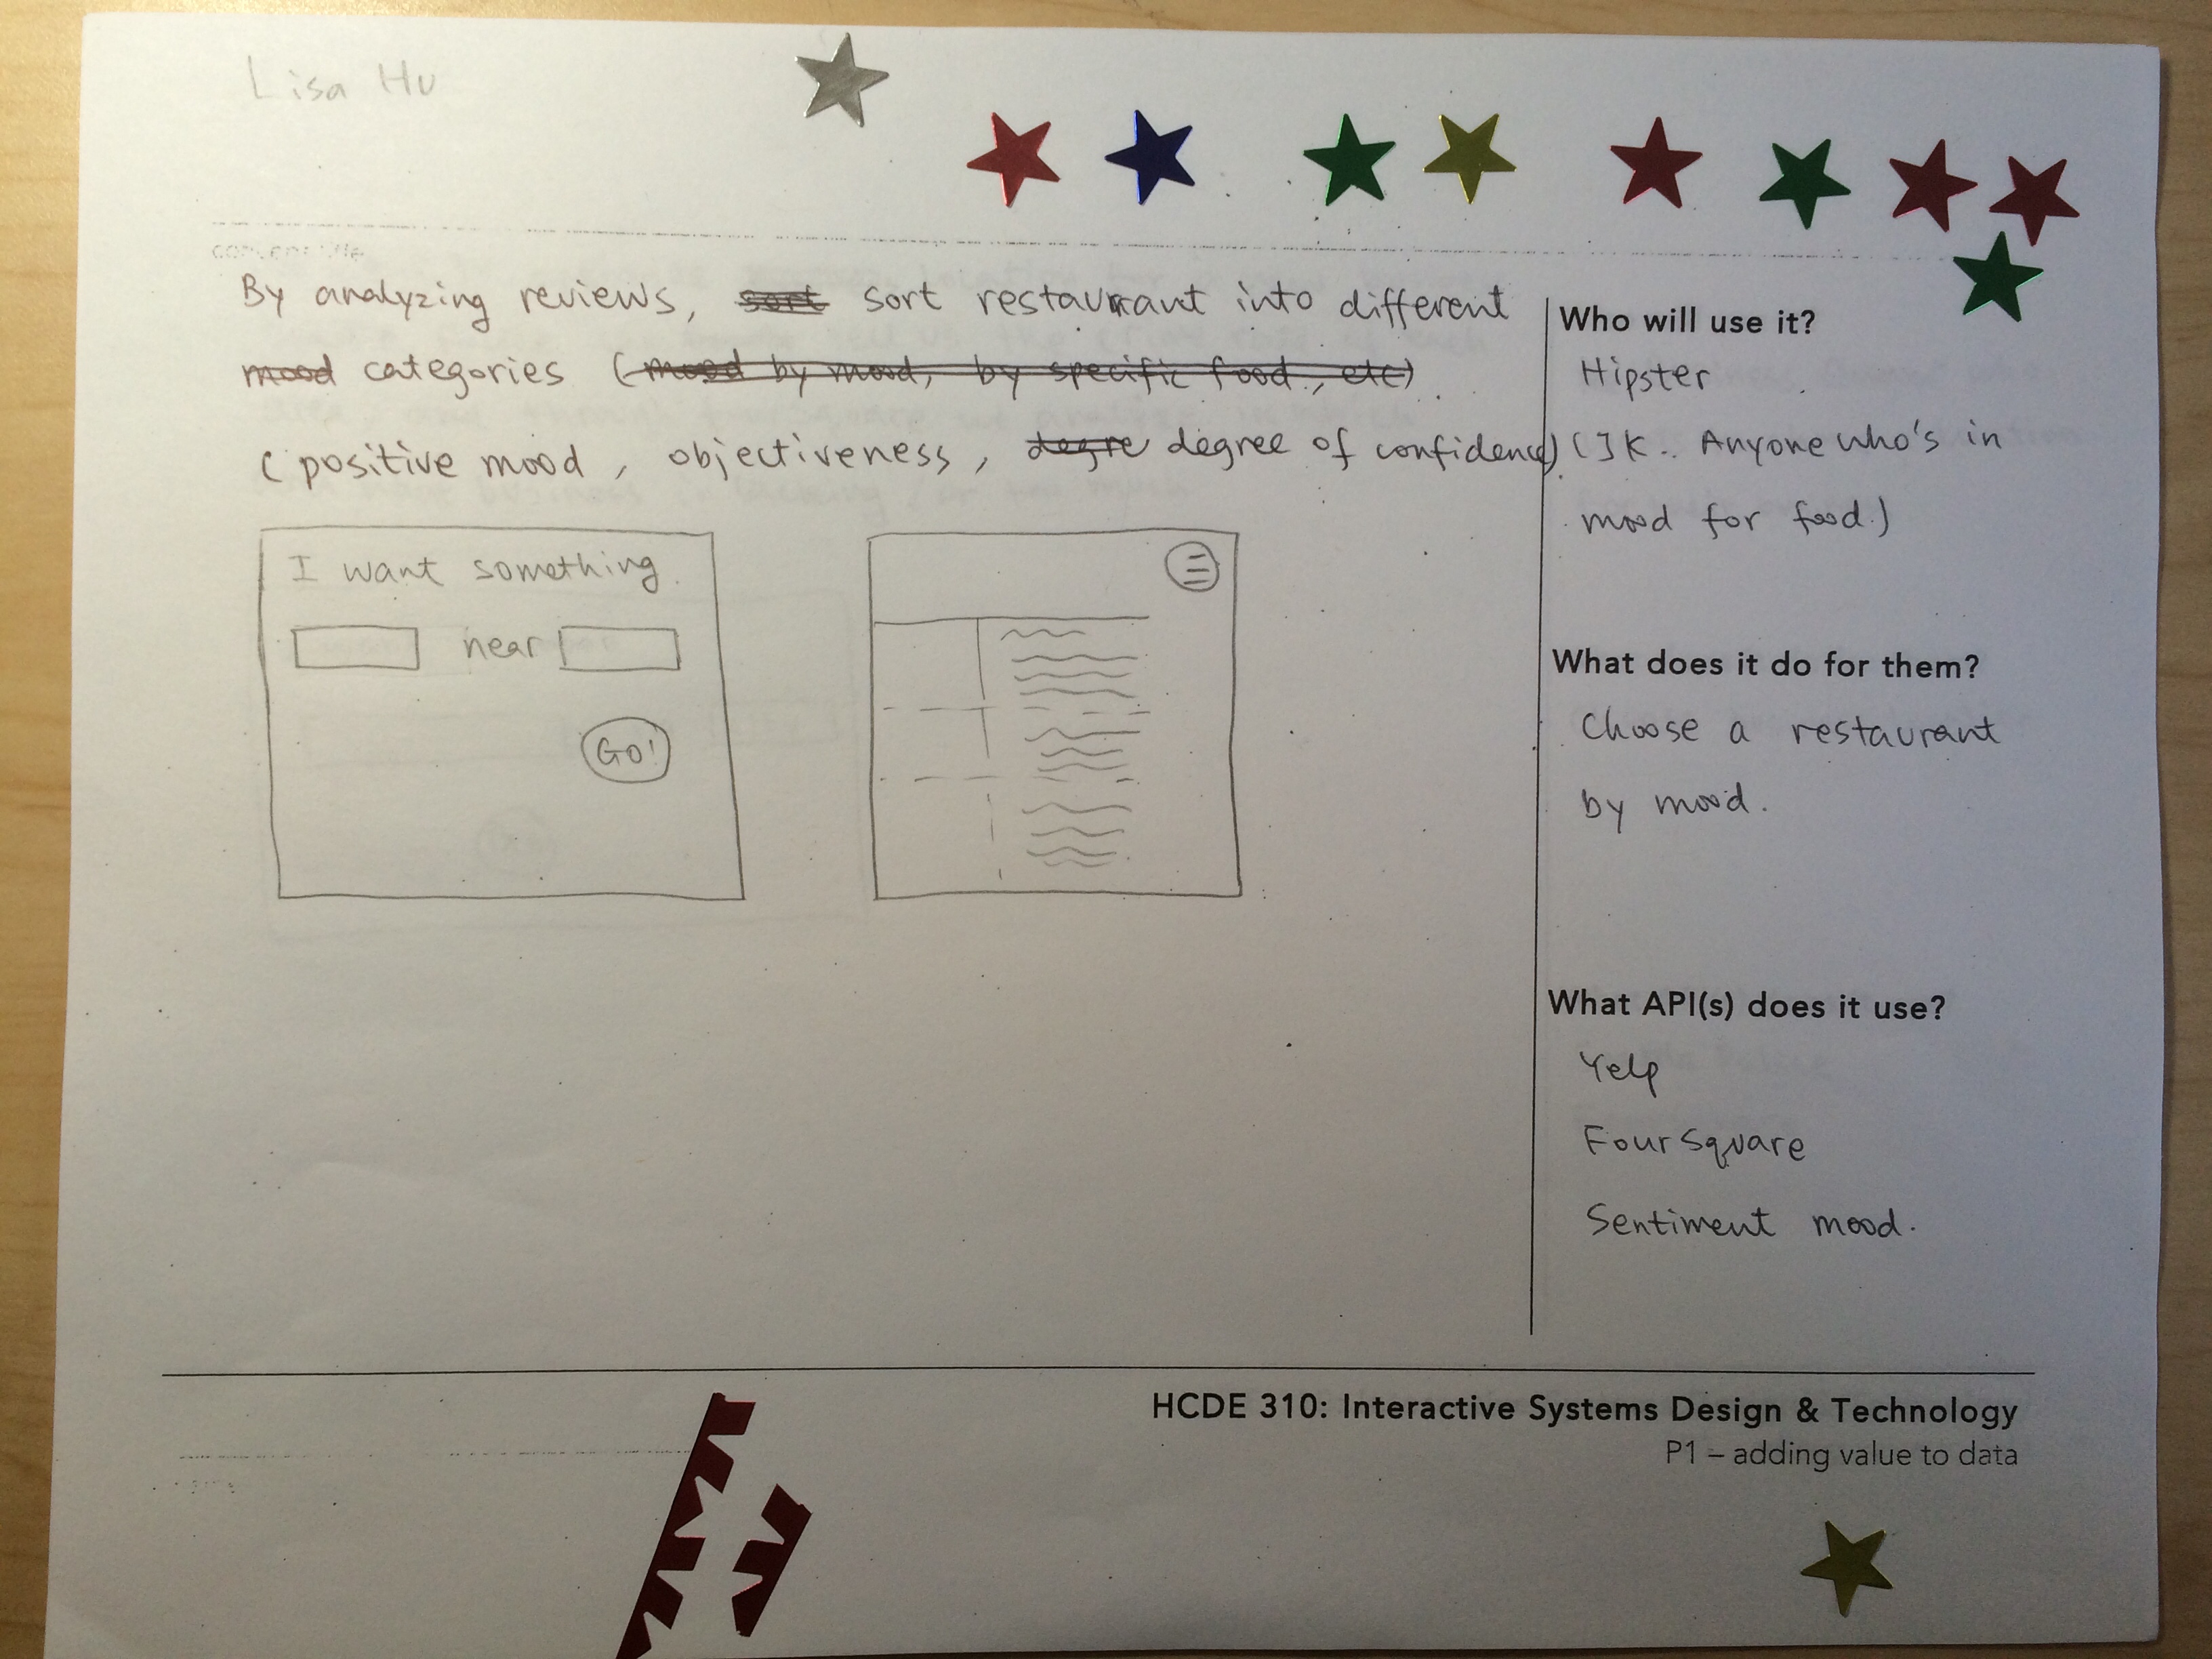 Lisa Hu
concept title
By analyzing reviews, sort sort restaurant into different
mood categories (mood by mood, by specific food, etc)
(positive mood, objectiveness, degre degree of confidence)
I want something
near
Go!
Who will use it?
Hipster
(JK.. Anyone who's in
mood for food.)
What does it do for them?
Choose a restaurant
by mood.
What API(s) does it use?
Yelp
FourSquare
Sentiment mood.
HCDE 310: Interactive Systems Design & Technology
P1 – adding value to data